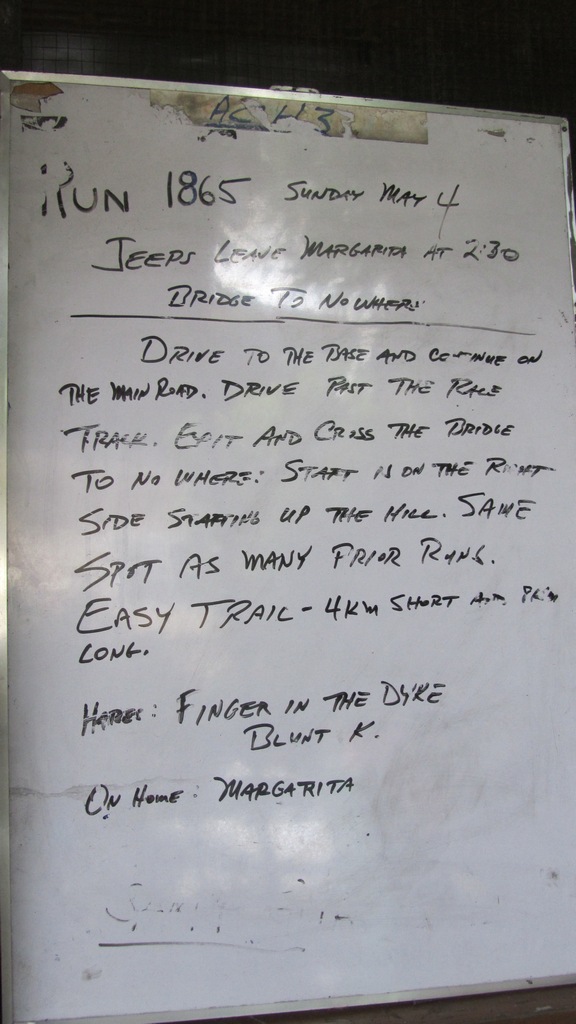 AC H3
RUN 1865 SUNDAY MAY 4
JEEPS LEAVE MARGARITA AT 2:30
BRIDGE TO NOWHERE
DRIVE TO THE BASE AND CONTINUE ON
THE MAIN ROAD. DRIVE PAST THE RACE
TRACK. EXIT AND CROSS THE BRIDGE
TO NO WHERE: START IS ON THE RIGHT
SIDE STARTING UP THE HILL. SAME
SPOT AS MANY PRIOR RUNS.
EASY TRAIL - 4KM SHORT AND 8KM
LONG.
HARES: FINGER IN THE DYKE
BLUNT K.
ON HOME: MARGARITA